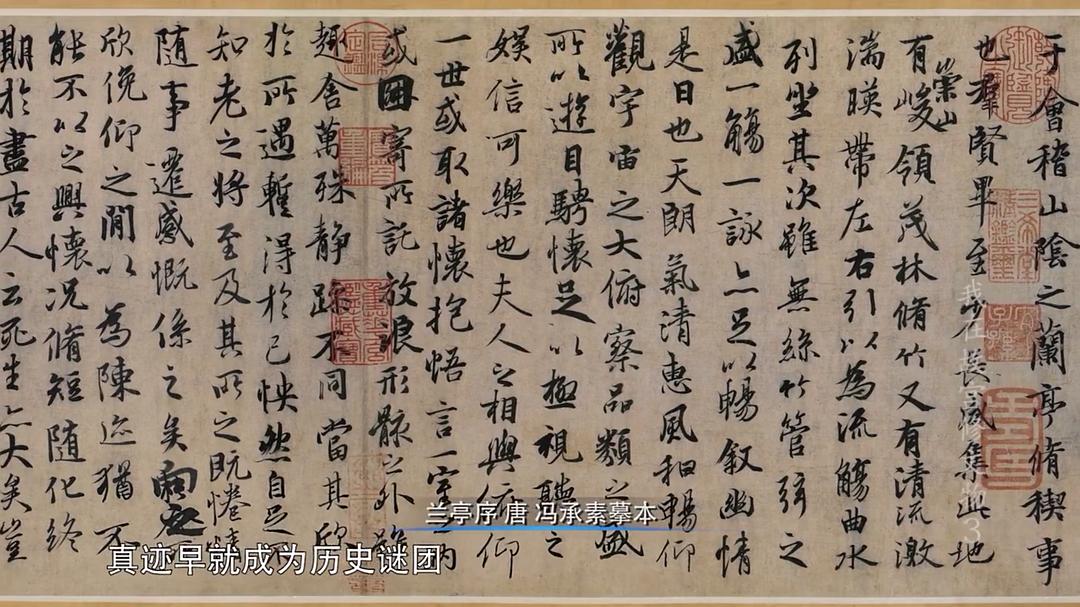 于會稽山陰之蘭亭脩稧事
也羣賢畢至少長咸集此地
有崇山峻領茂林脩竹又有清流激
湍暎帶左右引以為流觴曲水
列坐其次雖無絲竹管弦之
盛一觴一詠亦足以暢敘幽情
是日也天朗氣清惠風和暢仰
觀宇宙之大俯察品類之盛
所以遊目騁懷足以極視聽之
娛信可樂也夫人之相與俯仰
一世或取諸懷抱悟言一室之內
或因寄所託放浪形骸之外雖
趣舍萬殊靜躁不同當其欣
於所遇暫得於己怏然自足不
知老之將至及其所之既惓情
隨事遷感慨係之矣向之所
欣俛仰之閒以為陳迹猶不
能不以之興懷況脩短隨化終
期於盡古人云死生亦大矣豈
兰亭序 唐 冯承素摹本
真迹早就成为历史谜团